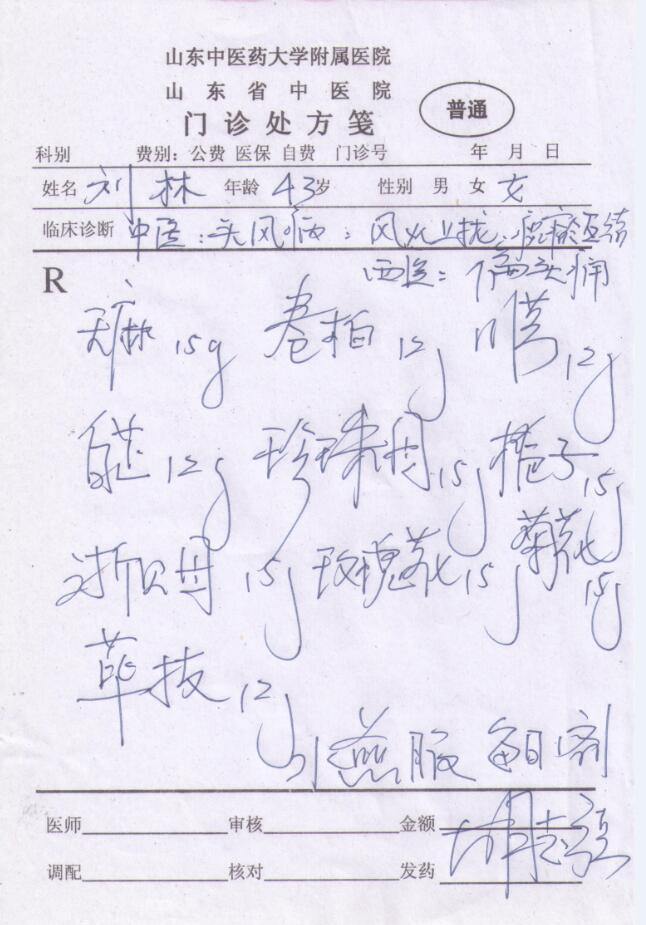 山东中医药大学附属医院
山东省中医院
门诊处方笺
普通
科别 费别：公费 医保 自费 门诊号 年 月 日
姓名 刘林 年龄 43岁 性别 男 女 女
临床诊断 中医：头风病：风火上扰
西医：偏头痛
R
天麻 15g 卷柏 12g 川芎 12g
白芷 12g 珍珠母 15g 栀子 15g
浙贝母 15g 玫瑰花 15g 菊花 15g
荜拨 12g
水煎服 每日一剂
医师 审核 金额
调配 核对 发药